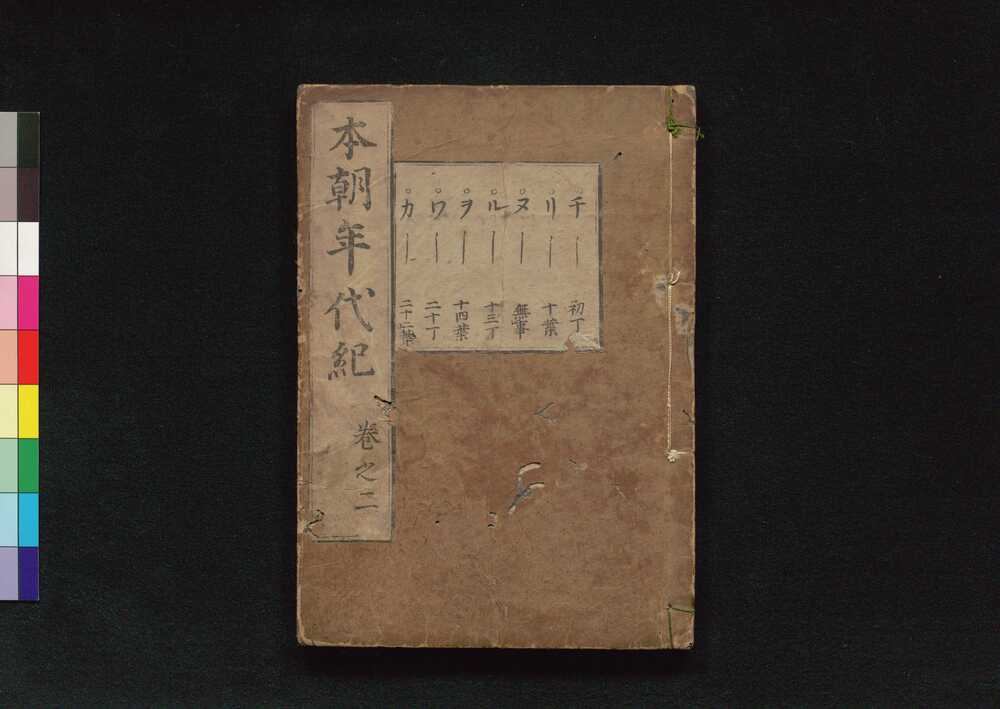 チ 初丁
リ 十葉
ヌ 無事
ル 十三丁
ヲ 十四葉
ワ 二十丁
カ 二十二葉
本朝年代紀 巻之二